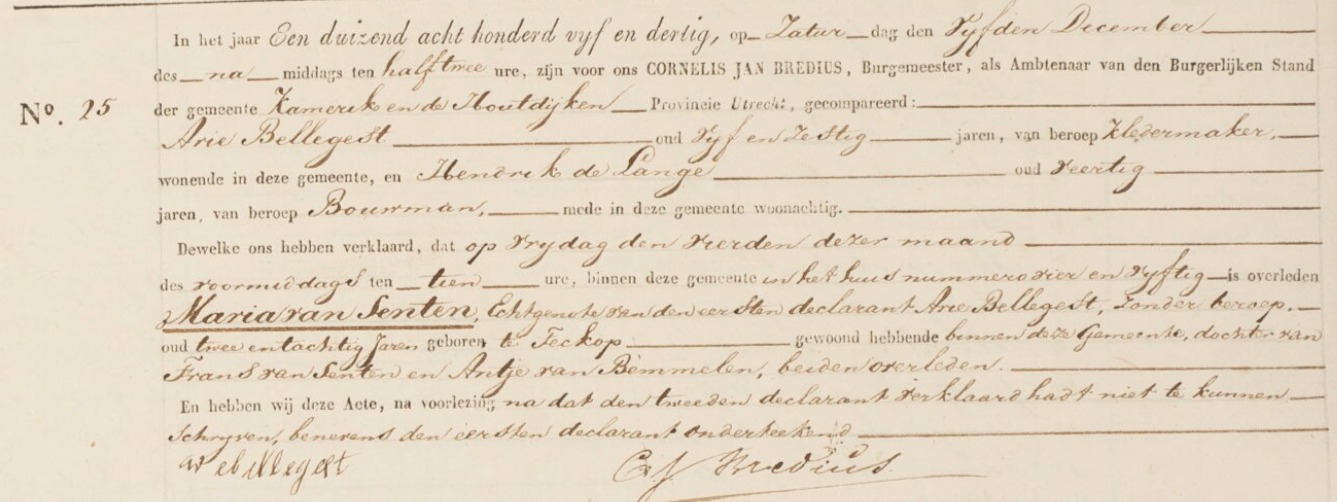 In het jaar Een duizend acht honderd vyf en dertig, op Zatur dag den Vyfden December
des na middags ten half twee ure, zijn voor ons CORNELIS JAN BREDIUS, Burgemeester, als Ambtenaar van den Burgerlijken Stand
No. 25 der gemeente Kamerik en de Houtdijken Provincie Utrecht, gecompareerd:
Arie Bellegest oud Vyf en Zestig jaren, van beroep Kledermaker,
wonende in deze gemeente, en Hendrik de Lange oud Veertig
jaren, van beroep Bouwman, mede in deze gemeente woonachtig.
Dewelke ons hebben verklaard, dat op Vrydag den Vierden dezer maand
des voormiddags ten tien ure, binnen deze gemeente in het huis nummero vier en Vyftig is overleden
Maria van Senten, Echtgenote van den eersten declarant Arie Bellegest, Zonder beroep.
oud twee en tachtig Jaren geboren te Teckop. gewoond hebbende binnen deze Gemeente, dochter van
Frans van Senten en Antje van Bemmelen, beiden overleden.
En hebben wij deze Acte, na voorlezing na dat den tweeden declarant verklaard hadt niet te kunnen
Schryven, benevens den eersten declarant onderteekend
CJ Bredius